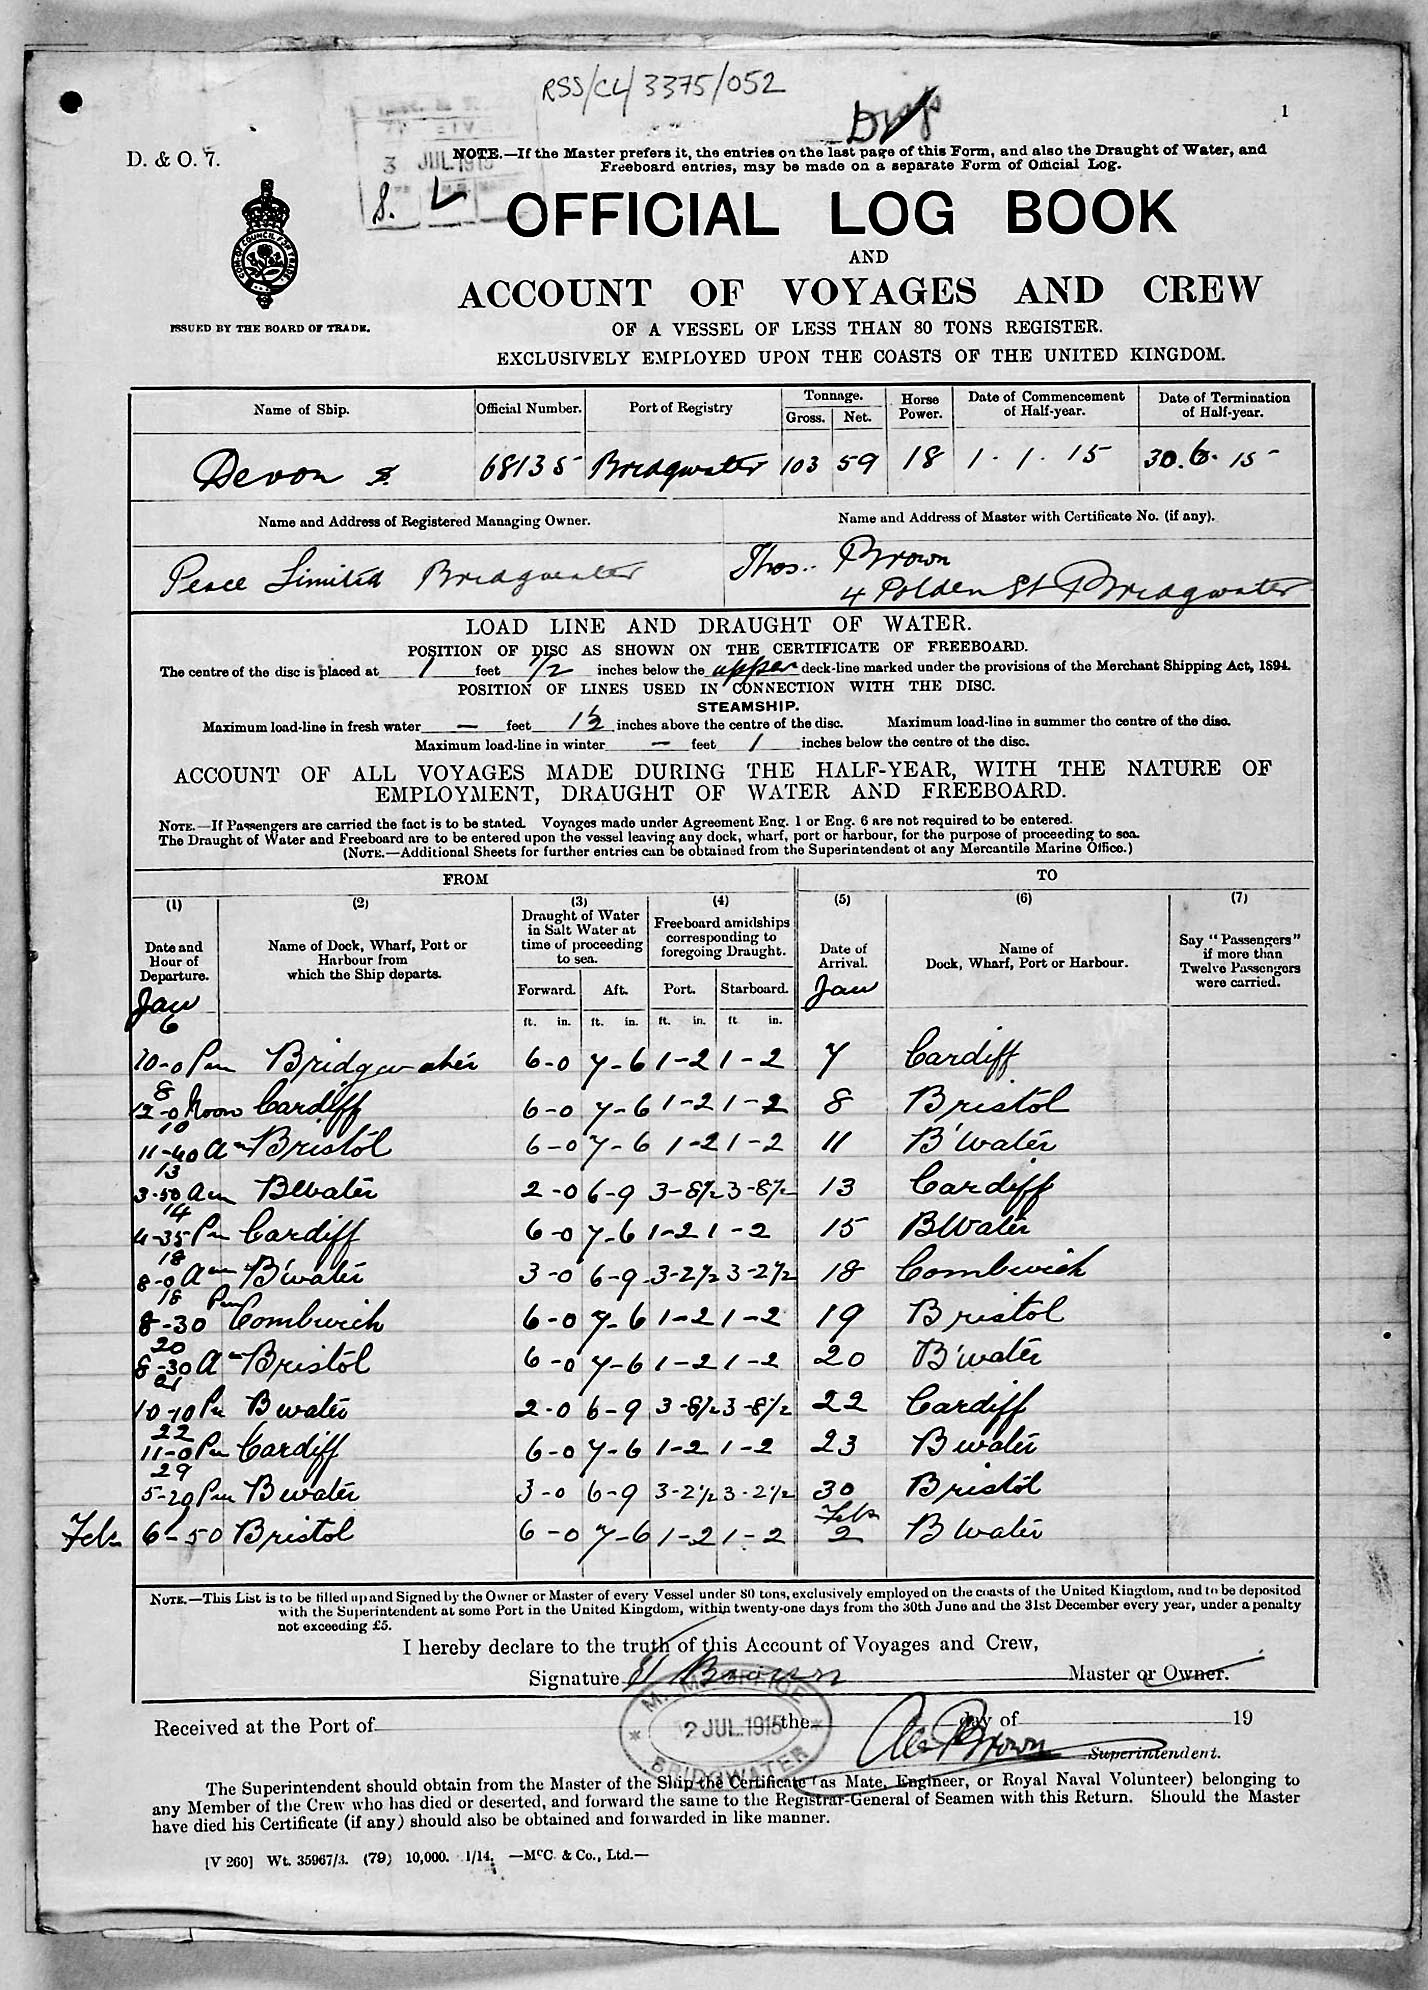 RSS/CL/3375/052
1
D. & O. 7.
3 JUL 1915
8.
NOTE.—If the Master prefers it, the entries on the last page of this Form, and also the Draught of Water, and
Freeboard entries, may be made on a separate Form of Official Log.
OFFICIAL LOG BOOK
AND
ACCOUNT OF VOYAGES AND CREW
OF A VESSEL OF LESS THAN 80 TONS REGISTER.
EXCLUSIVELY EMPLOYED UPON THE COASTS OF THE UNITED KINGDOM.
ISSUED BY THE BOARD OF TRADE.
Name of Ship. Official Number. Port of Registry Tonnage. Gross. Net. Horse Power. Date of Commencement of Half-year. Date of Termination of Half-year.
Devon 68135 Bridgwater 103 59 18 1 . 1 . 15 30.6.15
Name and Address of Registered Managing Owner. Name and Address of Master with Certificate No. (if any).
Limited Bridgwater Thos. Brown
4 Polden St Bridgwater
LOAD LINE AND DRAUGHT OF WATER.
POSITION OF DISC AS SHOWN ON THE CERTIFICATE OF FREEBOARD.
The centre of the disc is placed at 1 feet 1/2 inches below the upper deck-line marked under the provisions of the Merchant Shipping Act, 1894.
POSITION OF LINES USED IN CONNECTION WITH THE DISC.
STEAMSHIP.
Maximum load-line in fresh water — feet 1½ inches above the centre of the disc. Maximum load-line in summer the centre of the disc.
Maximum load-line in winter — feet 1 inches below the centre of the disc.
ACCOUNT OF ALL VOYAGES MADE DURING THE HALF-YEAR, WITH THE NATURE OF
EMPLOYMENT, DRAUGHT OF WATER AND FREEBOARD.
NOTE.—If Passengers are carried the fact is to be stated. Voyages made under Agreement Eng. 1 or Eng. 6 are not required to be entered.
The Draught of Water and Freeboard are to be entered upon the vessel leaving any dock, wharf, port or harbour, for the purpose of proceeding to sea.
(NOTE.—Additional Sheets for further entries can be obtained from the Superintendent of any Mercantile Marine Office.)
FROM TO
(1) (2) (3) (4) (5) (6) (7)
Date and Hour of Departure. Name of Dock, Wharf, Port or Harbour from which the Ship departs. Draught of Water in Salt Water at time of proceeding to sea. Freeboard amidships corresponding to foregoing Draught. Date of Arrival. Name of Dock, Wharf, Port or Harbour. Say "Passengers" if more than Twelve Passengers were carried.
Forward. Aft. Port. Starboard.
Jan Jan
ft. in. ft. in. ft. in. ft in.
6
10-0 Pm Bridgwater 6-0 7-6 1-2 1-2 7 Cardiff
8
12-0 Noon Cardiff 6-0 7-6 1-2 1-2 8 Bristol
10
11-40 am Bristol 6-0 7-6 1-2 1-2 11 B'water
13
3-50 am Bwater 2-0 6-9 3-8½ 3-8½ 13 Cardiff
14
4-35 Pm Cardiff 6-0 7-6 1-2 1-2 15 BWater
18
8-0 am B'water 3-0 6-9 3-2½ 3-2½ 18 Combwich
18
8-30 Pm Combwich 6-0 7-6 1-2 1-2 19 Bristol
20
8-30 am Bristol 6-0 7-6 1-2 1-2 20 B'water
21
10-10 Pm Bwater 2-0 6-9 3-8½ 3-8½ 22 Cardiff
22
11-0 Pm Cardiff 6-0 7-6 1-2 1-2 23 Bwater
29
5-20 Pm Bwater 3-0 6-9 3-2½ 3-2½ 30 Bristol
Feb
Feb 6-50 Bristol 6-0 7-6 1-2 1-2 2 BWater
NOTE.—This List is to be filled up and Signed by the Owner or Master of every Vessel under 80 tons, exclusively employed on the coasts of the United Kingdom, and to be deposited
with the Superintendent at some Port in the United Kingdom, within twenty-one days from the 30th June and the 31st December every year, under a penalty
not exceeding £5.
I hereby declare to the truth of this Account of Voyages and Crew,
Signature Brown Master or Owner.
Received at the Port of the day of 19
M. M. OFFICE
2 JUL.1915
BRIDGWATER
Brown Superintendent.
The Superintendent should obtain from the Master of the Ship the Certificate (as Mate, Engineer, or Royal Naval Volunteer) belonging to
any Member of the Crew who has died or deserted, and forward the same to the Registrar-General of Seamen with this Return. Should the Master
have died his Certificate (if any) should also be obtained and forwarded in like manner.
[V 260] Wt. 35967/3. (79) 10,000. 1/14. —McC. & Co., Ltd.—